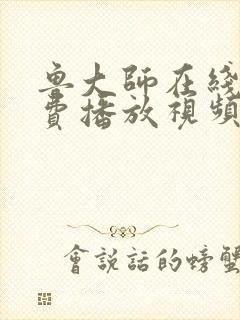 魯大師在綫
費播放視頻
會説話的螃蟹